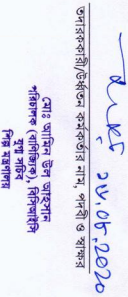 তদারককারী/উর্ধ্বতন কর্মকর্তার নাম, পদবী ও স্বাক্ষর
মোঃ আমিন উল আহসান
পরিচালক (বাণিজ্যিক), বিসিআইসি
যুগ্ম সচিব
শিল্প মন্ত্রণালয়